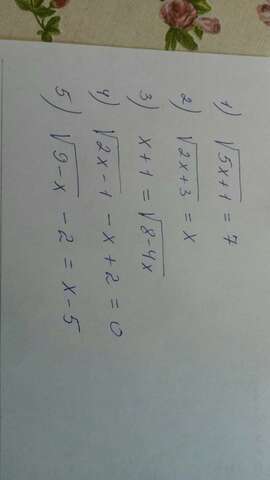 1) √5x+1 = 7
2) √2x+3 = x
3) x+1 = √8-4x
4) √2x-1 - x + 2 = 0
5) √9-x - 2 = x-5